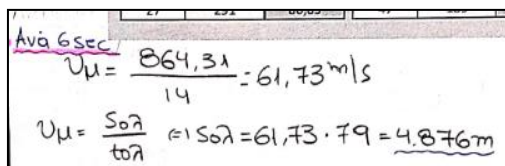 27 231 80,05 47
Ανά 6 sec
υμ = 864,31 / 14 = 61,73 m/s
υμ = Sολ / tολ (=) Sολ = 61,73 · 79 = 4.876m